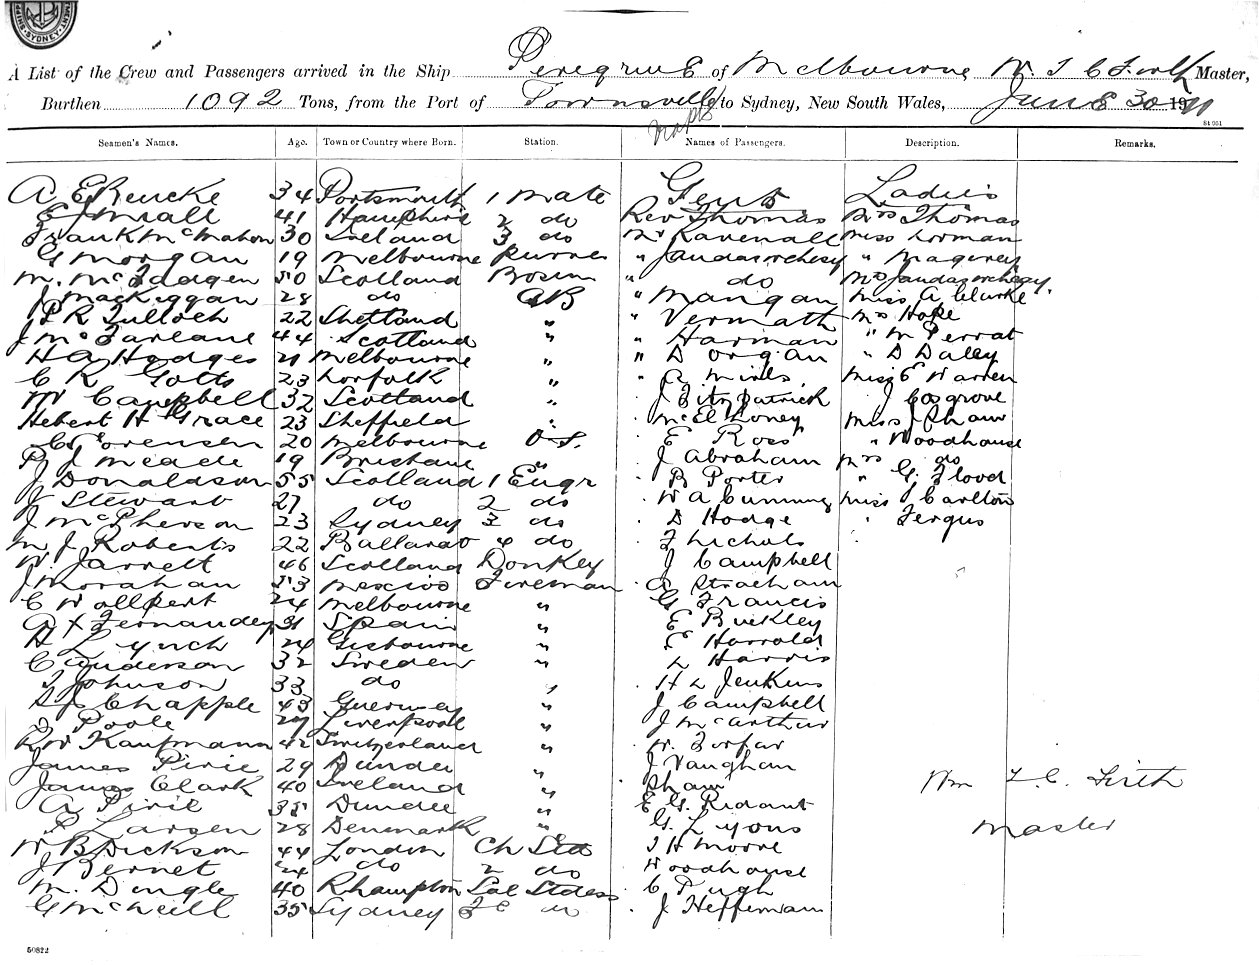 SYDNEY
A List of the Crew and Passengers arrived in the Ship Peregrine of Melbourne W. T C Firth Master,
Burthen 1092 Tons, from the Port of Townsville to Sydney, New South Wales, June 30 19
St 951
Seamen's Names. Age. Town or Country where Born. Station. Names of Passengers. Description. Remarks.
A E Reucke 34 Portsmouth 1 Mate Gents Ladies
E J Miall 41 Hampshire 2 do Rev Thomas Mrs Thomas
Frank McMahon 30 Ireland 3 do Mr Ravenall Miss Lorman
G Morgan 19 Melbourne Purser "
M. McFadgen 50 Scotland Bosun " do Mrs
J MacKiggan 28 do AB " Mangan Miss A Clarke
P R Tulloch 22 Shetland " " Vermath Mrs Hope
J McFarlane 44 Scotland " " Harman " M Perrat
H A Hodges 21 Melbourne " " D Organ " D Daley
C R Gotts 23 Norfolk " " A Mills Miss E Warren
W Campbell 32 Scotland " J Fitzpatrick J Cosgrove
Hebert H Grace 23 Sheffield " McElhoney Miss J Shaw
C Sorensen 20 Melbourne O.S. E Ross " Woodhouse
P J Meade 19 Brisbane " J Abraham Mrs do
J Donaldson 55 Scotland 1 Engr B Porter " G. Flood
J Stewart 27 do 2 do W A Cumming Miss Carlton
J McPherson 23 Sydney 3 do D Hodge " Fergus
M J Roberts 22 Ballarat 4 do F Nichols
W Jarrett 46 Scotland Donkey J Campbell
J Morahan 53 Mexico Fireman A Strachan
C Wallpert 24 Melbourne " G Francis
A X Fernandez 31 Spain " E Buckley
H Lynch 24 Gisbourne " E Harrold
C Anderson 32 Sweden " L Harris
J Johnson 33 do " H L Jenkins
D J Chapple 43 Guernsey " J Campbell
Poole 29 Liverpool " J McArthur
R W Kaufmann 42 Switzerland " W. Forfar
James Pirie 29 Dundee " J Vaughan
James Clark 40 Ireland " Shaw Wm T. C. Firth
A Pirie 35 Dundee " E G. Ridant
P Larsen 28 Denmark " G. Lyons Master
W B Dickson 44 London Ch Std J H Moore
J Bernet 24 do 2 do Woodhouse
M. Dingle 40 Rhampton Sal Stdess C Pugh
G McNeill 35 Sydney J Heffernan
50822